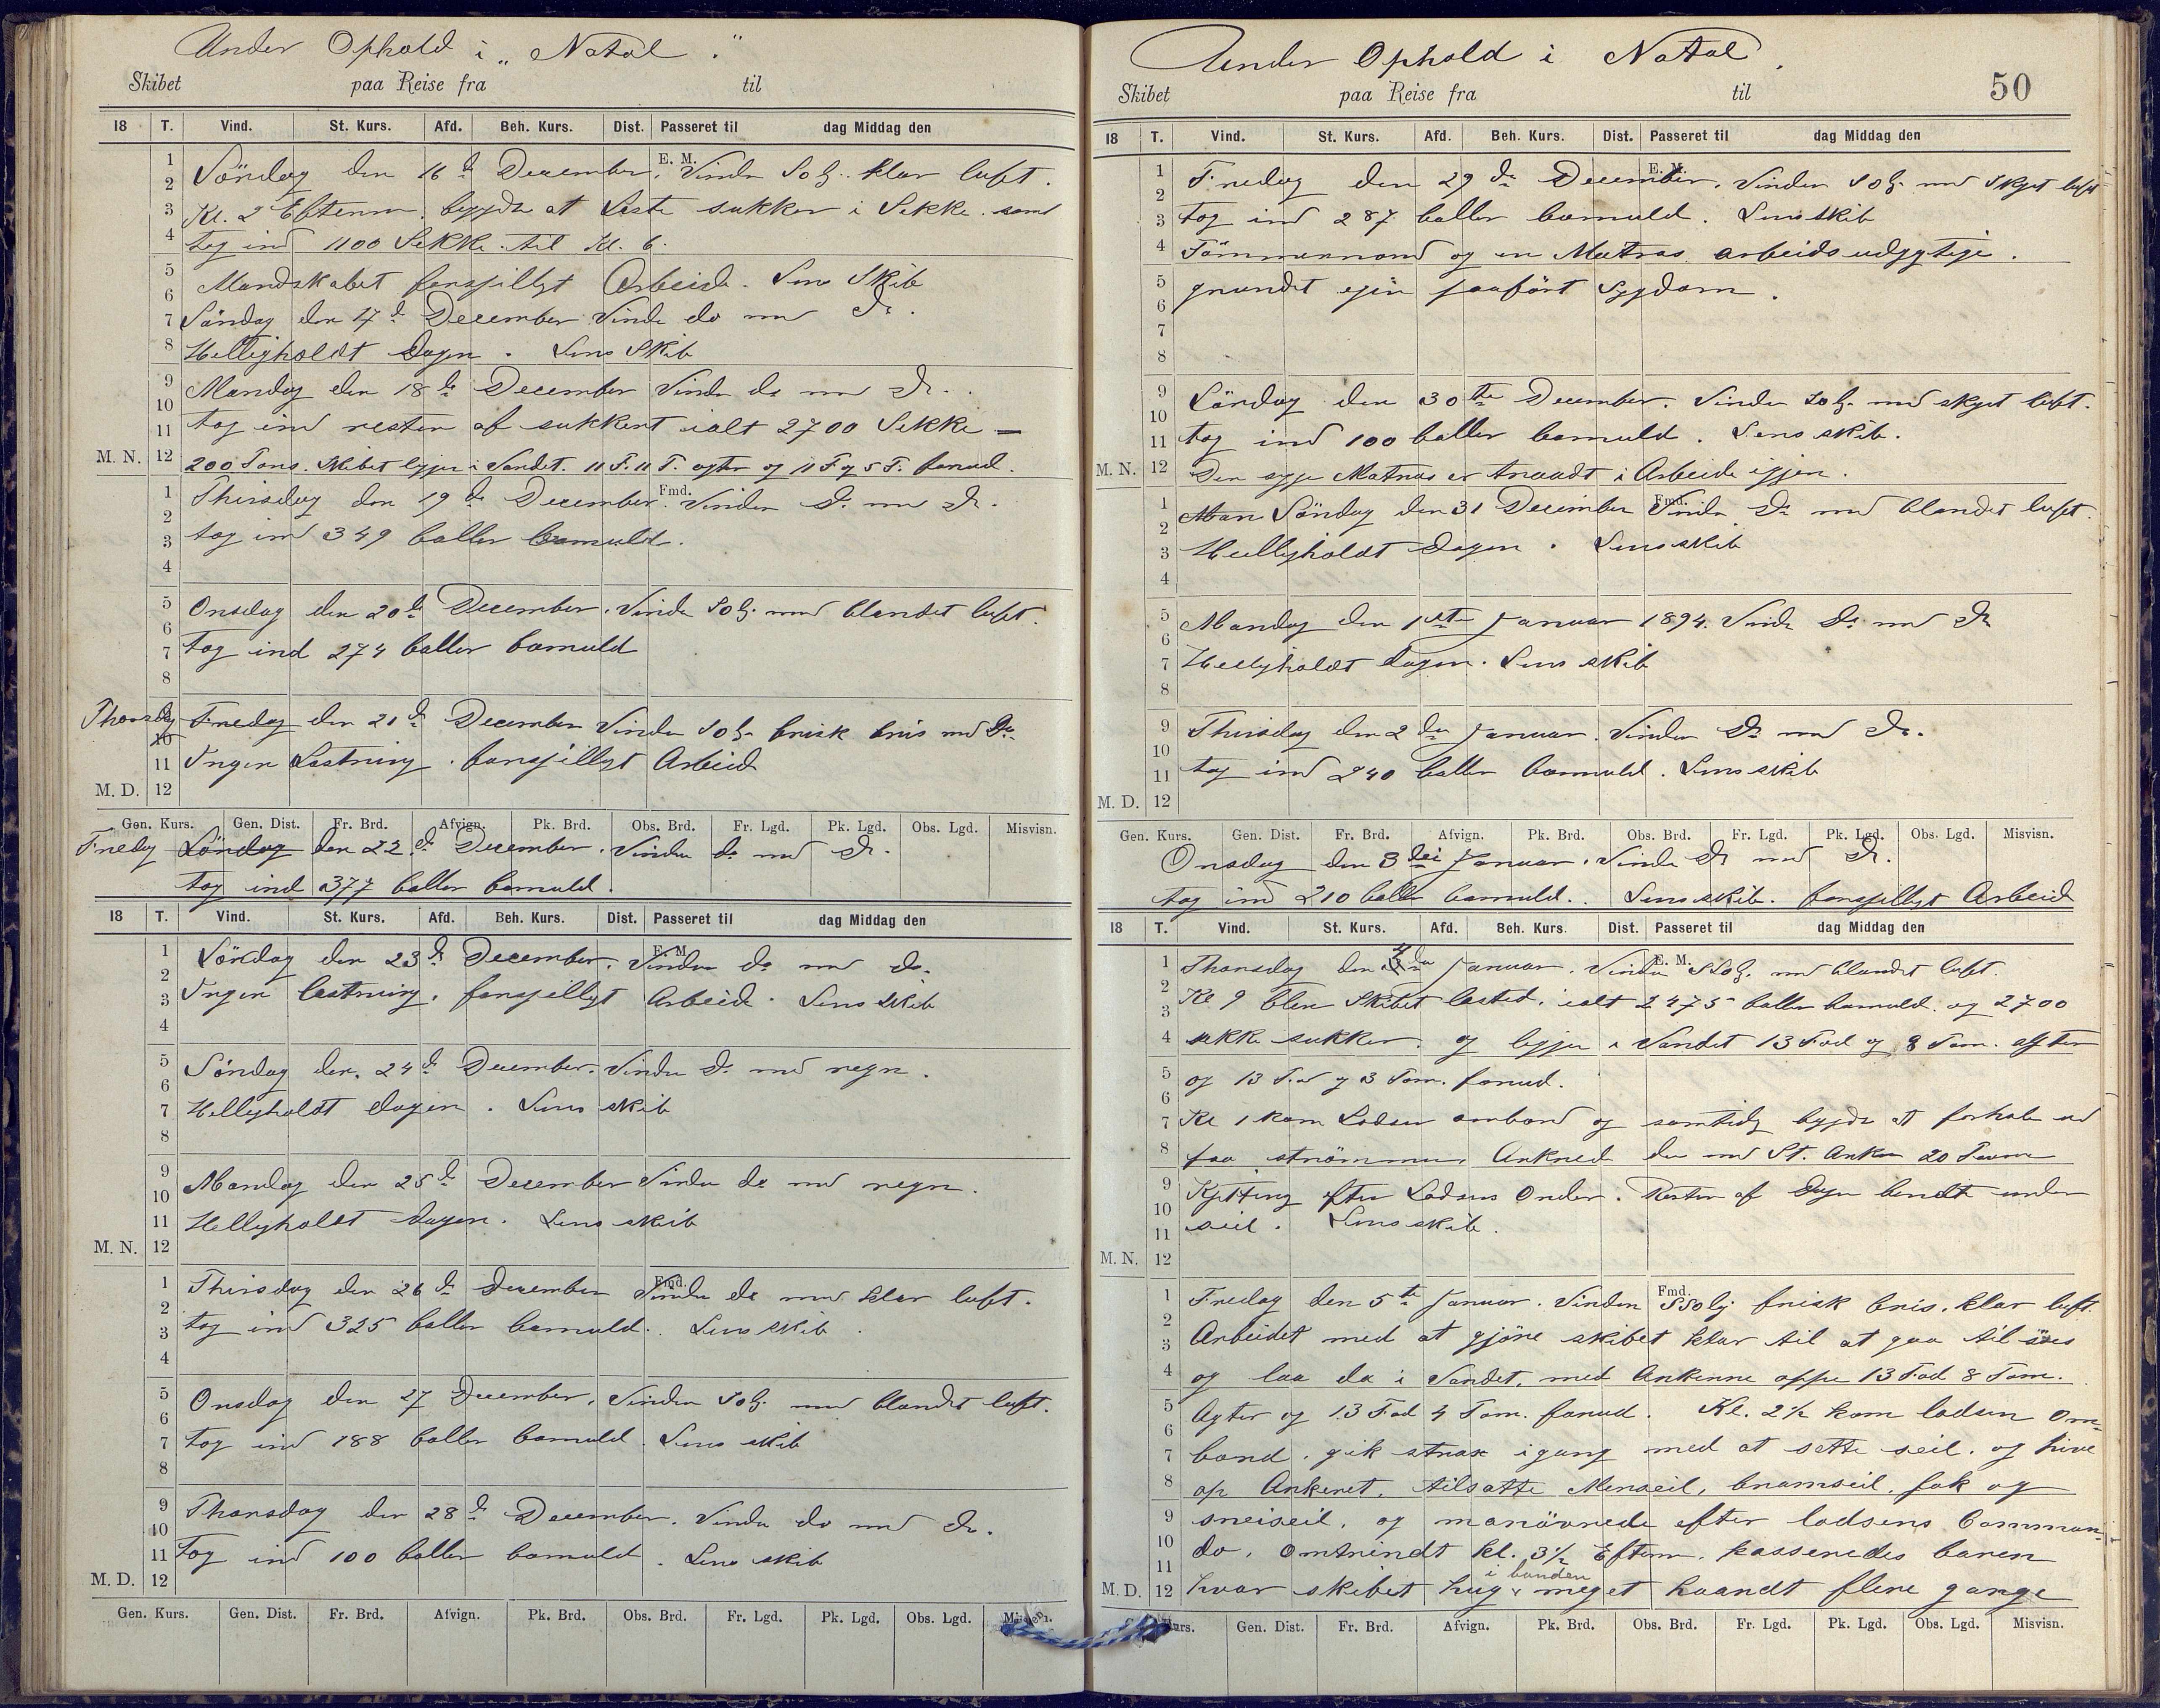 Under Ophold i „Natal".
Skibet paa Reise fra til
18 T. Vind. St. Kurs. Afd. Beh. Kurs. Dist. Passeret til dag Middag den
E. M.
Löndag den 16 d December. Vinden SO lg. klar luft.
Kl. 2 Efterm. begydte at laste sukker i Sekke. samt
tog ind 1100 Sekke til Kl. 6.
Mandskabet forsjilligt Arbeide. Lens Skib
Söndag den 17 d December Vinde do med Do.
Helligholdt Dagen. Lens Skib
Mandag den 18 de December Vinden do med Do.
tog ind resten af sukkert ialt 2700 Sekke —
M. N. 12 200 Tons. Skibet ligjer i Vandet. 11 F. 11 T. agter og 11 F og 5 T. forud.
Fmd.
Thirsdag den 19 de December. Vinden Do med Do.
tog ind 349 baller bomuld.
Onsdag den 20 de December. Vinden SO lg. med blandet luft.
tog ind 274 baller bomuld
Thorsdag Fredag den 21 d December Vinden SO lg. frisk bris med Do.
Ingen Lastning. forsjilligt Arbeid
M. D. 12
Gen. Kurs. Gen. Dist. Fr. Brd. Afvign. Pk. Brd. Obs. Brd. Fr. Lgd. Pk. Lgd. Obs. Lgd. Misvisn.
Fredag Löndag den 22 d December. Vinden do med Do.
tog ind 377 baller bomuld.
18 T. Vind. St. Kurs. Afd. Beh. Kurs. Dist. Passeret til dag Middag den
E. M.
Löndag den 23 d December. Vinden do med do.
Ingen lastning. forsjilligt Arbeide. Lens Skib
Söndag den 24 d December. Vinden Do med regn.
Helligholdt dagen. Lens skib
Mandag den 25 d December Vinden do med regn.
Helligholdt dagen. Lens skib
M. N. 12
Fmd.
Thirsdag den 26 d December Vinden do med klar luft.
tog ind 325 baller bomuld. Lens skib.
Onsdag den 27 December, Vinden SO lg. med blandet luft.
tog ind 188 baller bomuld. Lens skib
Thorsdag den 28 d December. Vinden do med do.
Tog ind 100 baller bomuld. Lens skib
M. D. 12
Gen. Kurs. Gen. Dist. Fr. Brd. Afvign. Pk. Brd. Obs. Brd. Fr. Lgd. Pk. Lgd. Obs. Lgd. Misvisn.
Under Ophold i Natal.
Skibet paa Reise fra til 50
18 T. Vind. St. Kurs. Afd. Beh. Kurs. Dist. Passeret til dag Middag den
E. M.
Fredag den 29 de December. Vinden SO lg. med skyet luft
tog ind 287 baller bomuld. Lens skib
Tömmermand og en Matros arbeidsudygtige.
grundet egen paafört Sygdom.
Löndag den 30 te December. Vinden SO lg. med skyet luft.
tog ind 100 baller bomuld. Lens skib.
M. N. 12 Den syge Matros er traadt i Arbeide igjen.
Fmd.
Man Söndag den 31 December Vinden Do med blandet luft.
Helligholdt Dagen. Lens skib
Mandag den 1ste Januar 1894. Vinde Do med Do
Helligholdt dagen. Lens skib
Thirsdag den 2 den Januar. Vinden Do med Do.
tog ind 240 baller bomuld. Lens skib
M. D. 12
Gen. Kurs. Gen. Dist. Fr. Brd. Afvign. Pk. Brd. Obs. Brd. Fr. Lgd. Pk. Lgd. Obs. Lgd. Misvisn.
Onsdag den 3 dei Januar. Vinde Do med Do.
tog ind 210 baller bomuld. Lens skib. forsjelligt Arbeid
18 T. Vind. St. Kurs. Afd. Beh. Kurs. Dist. Passeret til dag Middag den
E. M.
Thorsdag den 4 de Januar. Vinden SSO lg. med blandet luft.
Kl 9 blev Skibet lasted. ialt 2475 baller bomuld. og 2700
sekke sukker. og ligjer i Vandet 13 Fod og 8 Tom. agter
og 13 Fod og 3 Tom. forud.
Kl 1 kom Lodsen ombord og samtidig begydte at forhale ud
paa strömmen. Ankred der med St. Anker 20 Favne
Kjetting efter Lodsens Order. Resten af Dagen bendt under
seil. Lens skib.
M. N. 12
Fmd.
Fredag den 5 te Januar. Vinden SSO lg frisk bris, klar luft.
Arbeidet med at gjöre skibet klar til at gaa til söes
og laa da i Vandet, med Ankerne oppe 13 Fod 8 Tom.
Agter og 13 Fod 4 Tom. forud. Kl. 2½ kom lodsen om-
bord, gik strax igang med at sette seil. og hive
op Ankeret. tilsatte Merseil, bramseil, fok og
sneiseil, og manövrede efter lodsens Comman-
do. Omtrindt kl. 3½ Efterm. passeredes baren
i bunden
M. D. 12 hvor skibet hug meget haardt flere gange
Kurs. Gen. Dist. Fr. Brd. Afvign. Pk. Brd. Obs. Brd. Fr. Lgd. Pk. Lgd. Obs. Lgd. Misvisn.